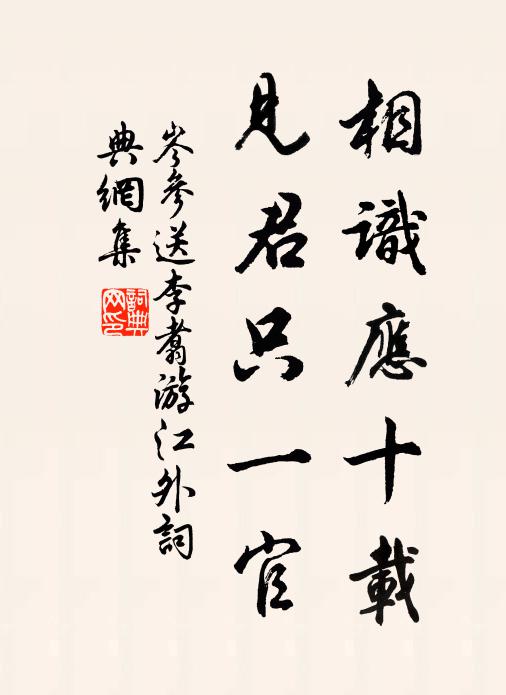 相識應十載
見君只一官
岑參送李翥游江外詞
典網集
詞典网印